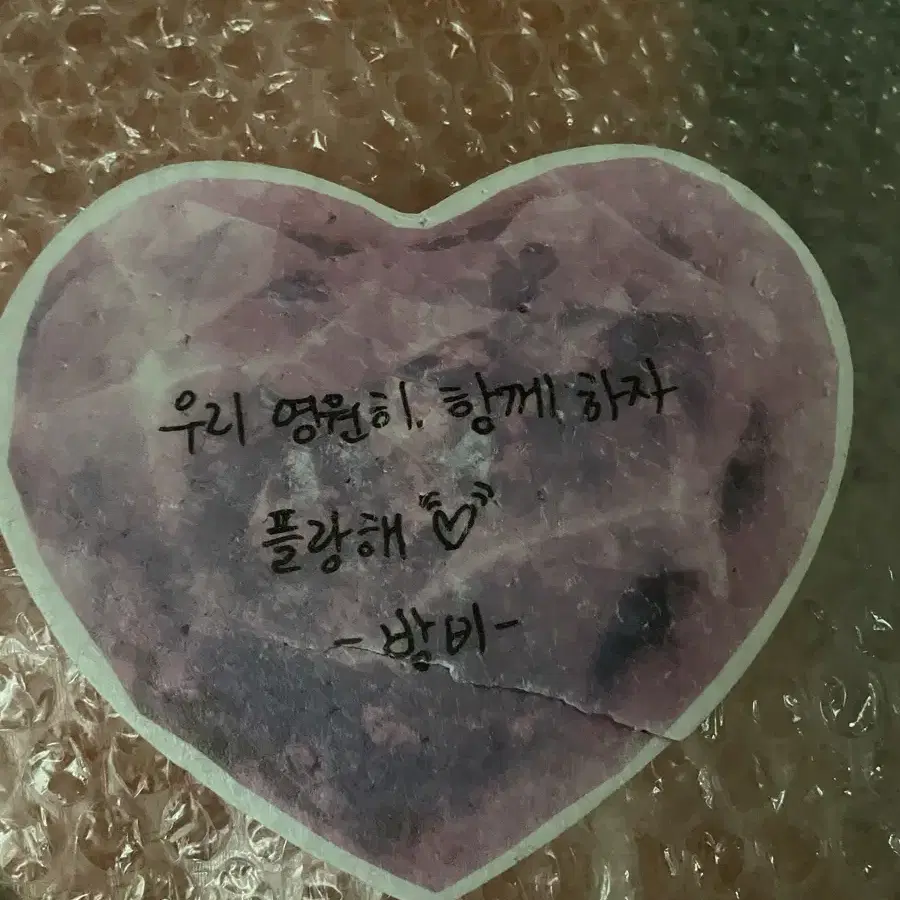 우리 영원히 함께 하자
플랑해 ♡
-밤비-